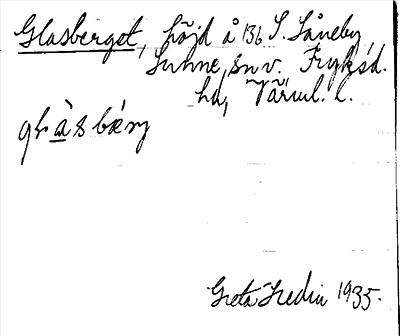 Glasberget, höjd å 136 S. Såneby
Sunne, sn v. Fryksd.
hd, Värml. l.
Greta Hedin 1935.